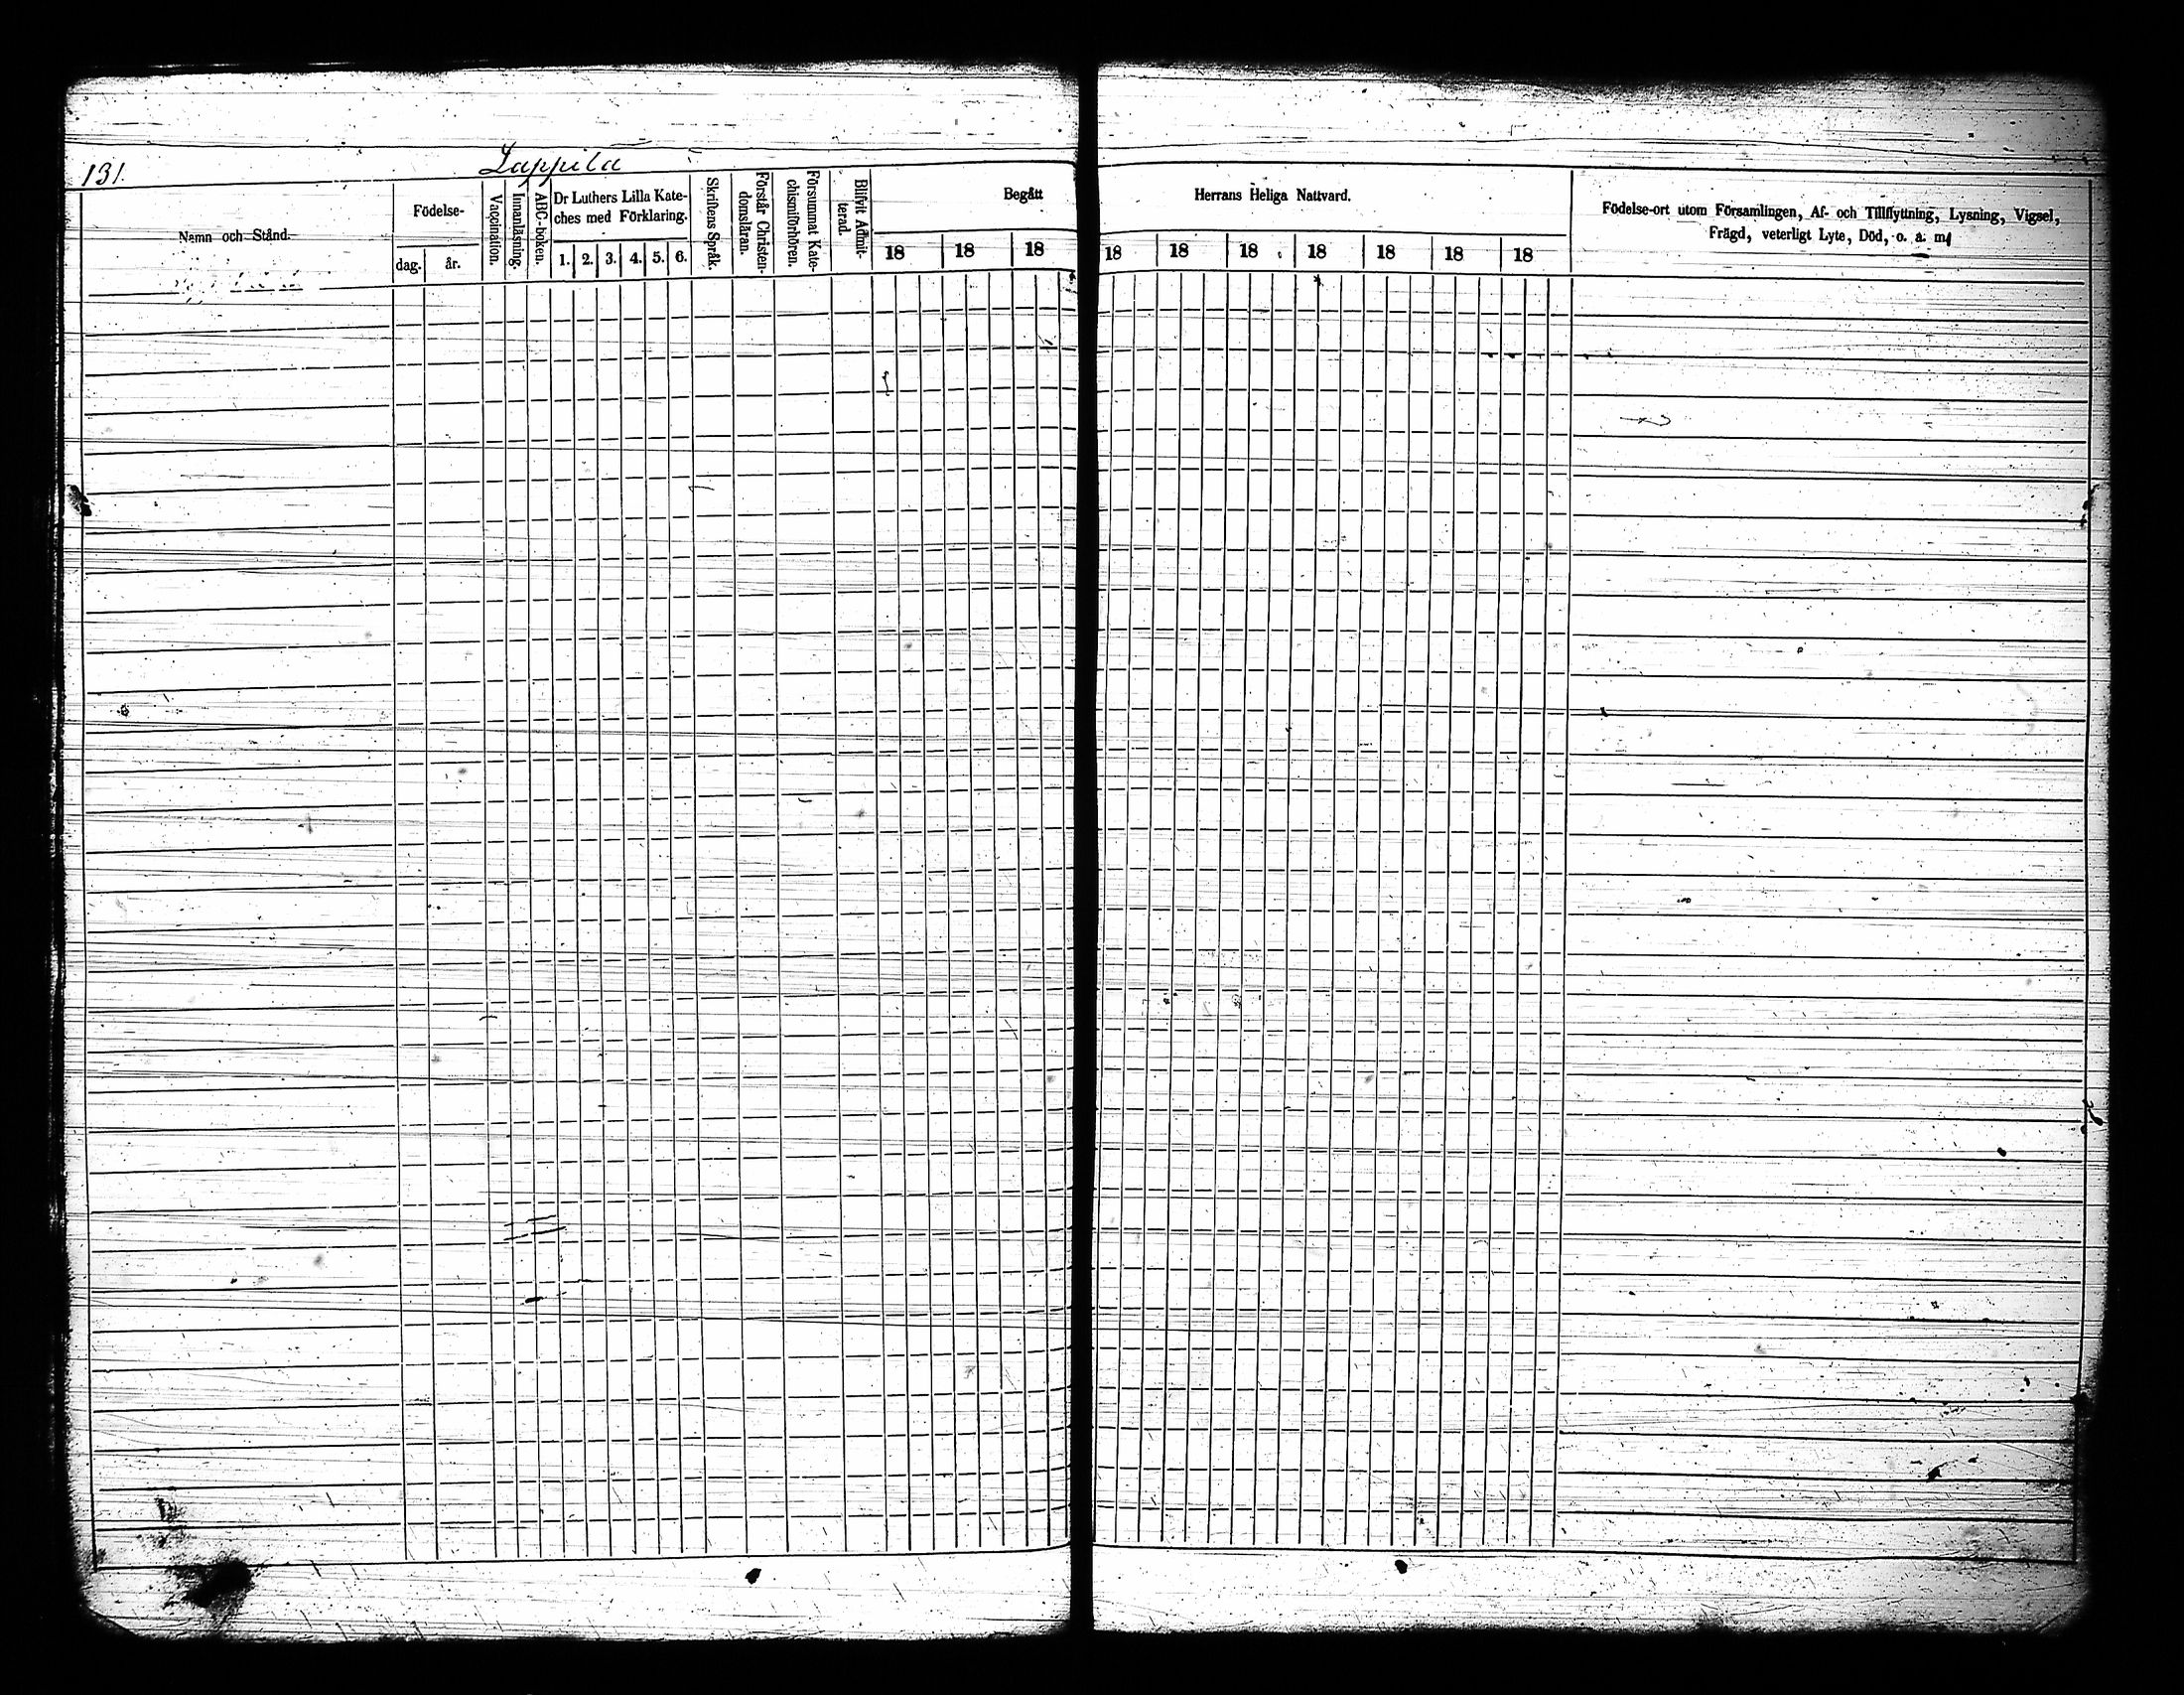 131.
Lappila
Namn och Stånd.
Födelse-
dag.
år.
Vaccination.
Innanläsning.
ABC-boken.
Dr Luthers Lilla Kate-
ches med Förklaring.
1. 2. 3. 4. 5. 6.
Skriftens Språk.
Förstår Christen-
domsläran.
Försummat Kate-
chismiförhören.
Blifvit Admit-
terad.
Begått Herrans Heliga Nattvard.
18 18 18 18 18 18 18 18 18 18
Födelse-ort utom Församlingen, Af- och Tillflyttning, Lysning, Vigsel,
Frägd, veterligt Lyte, Död, o. a. m.